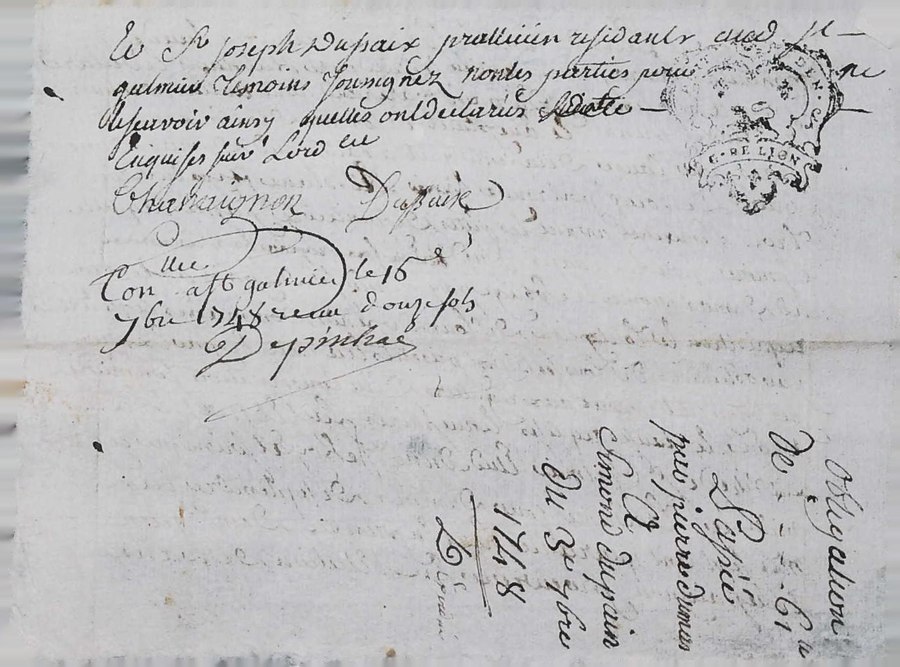 et Sr joseph Dupaix praticien residants aud st
galmier temoins soussignez non les parties pour ne
le scavoir ainsy quelles ont declarées
Enquises suiv Lord
Chavaignon Dupuix
Con lle a st galmier le 16
7bre 1748 receu douze sols
Depinhac
DEN
G. DE LION
obligation
De 61 lt
passée
par pierre dumas
A
Simond dupain
Du 3e 7bre
1748